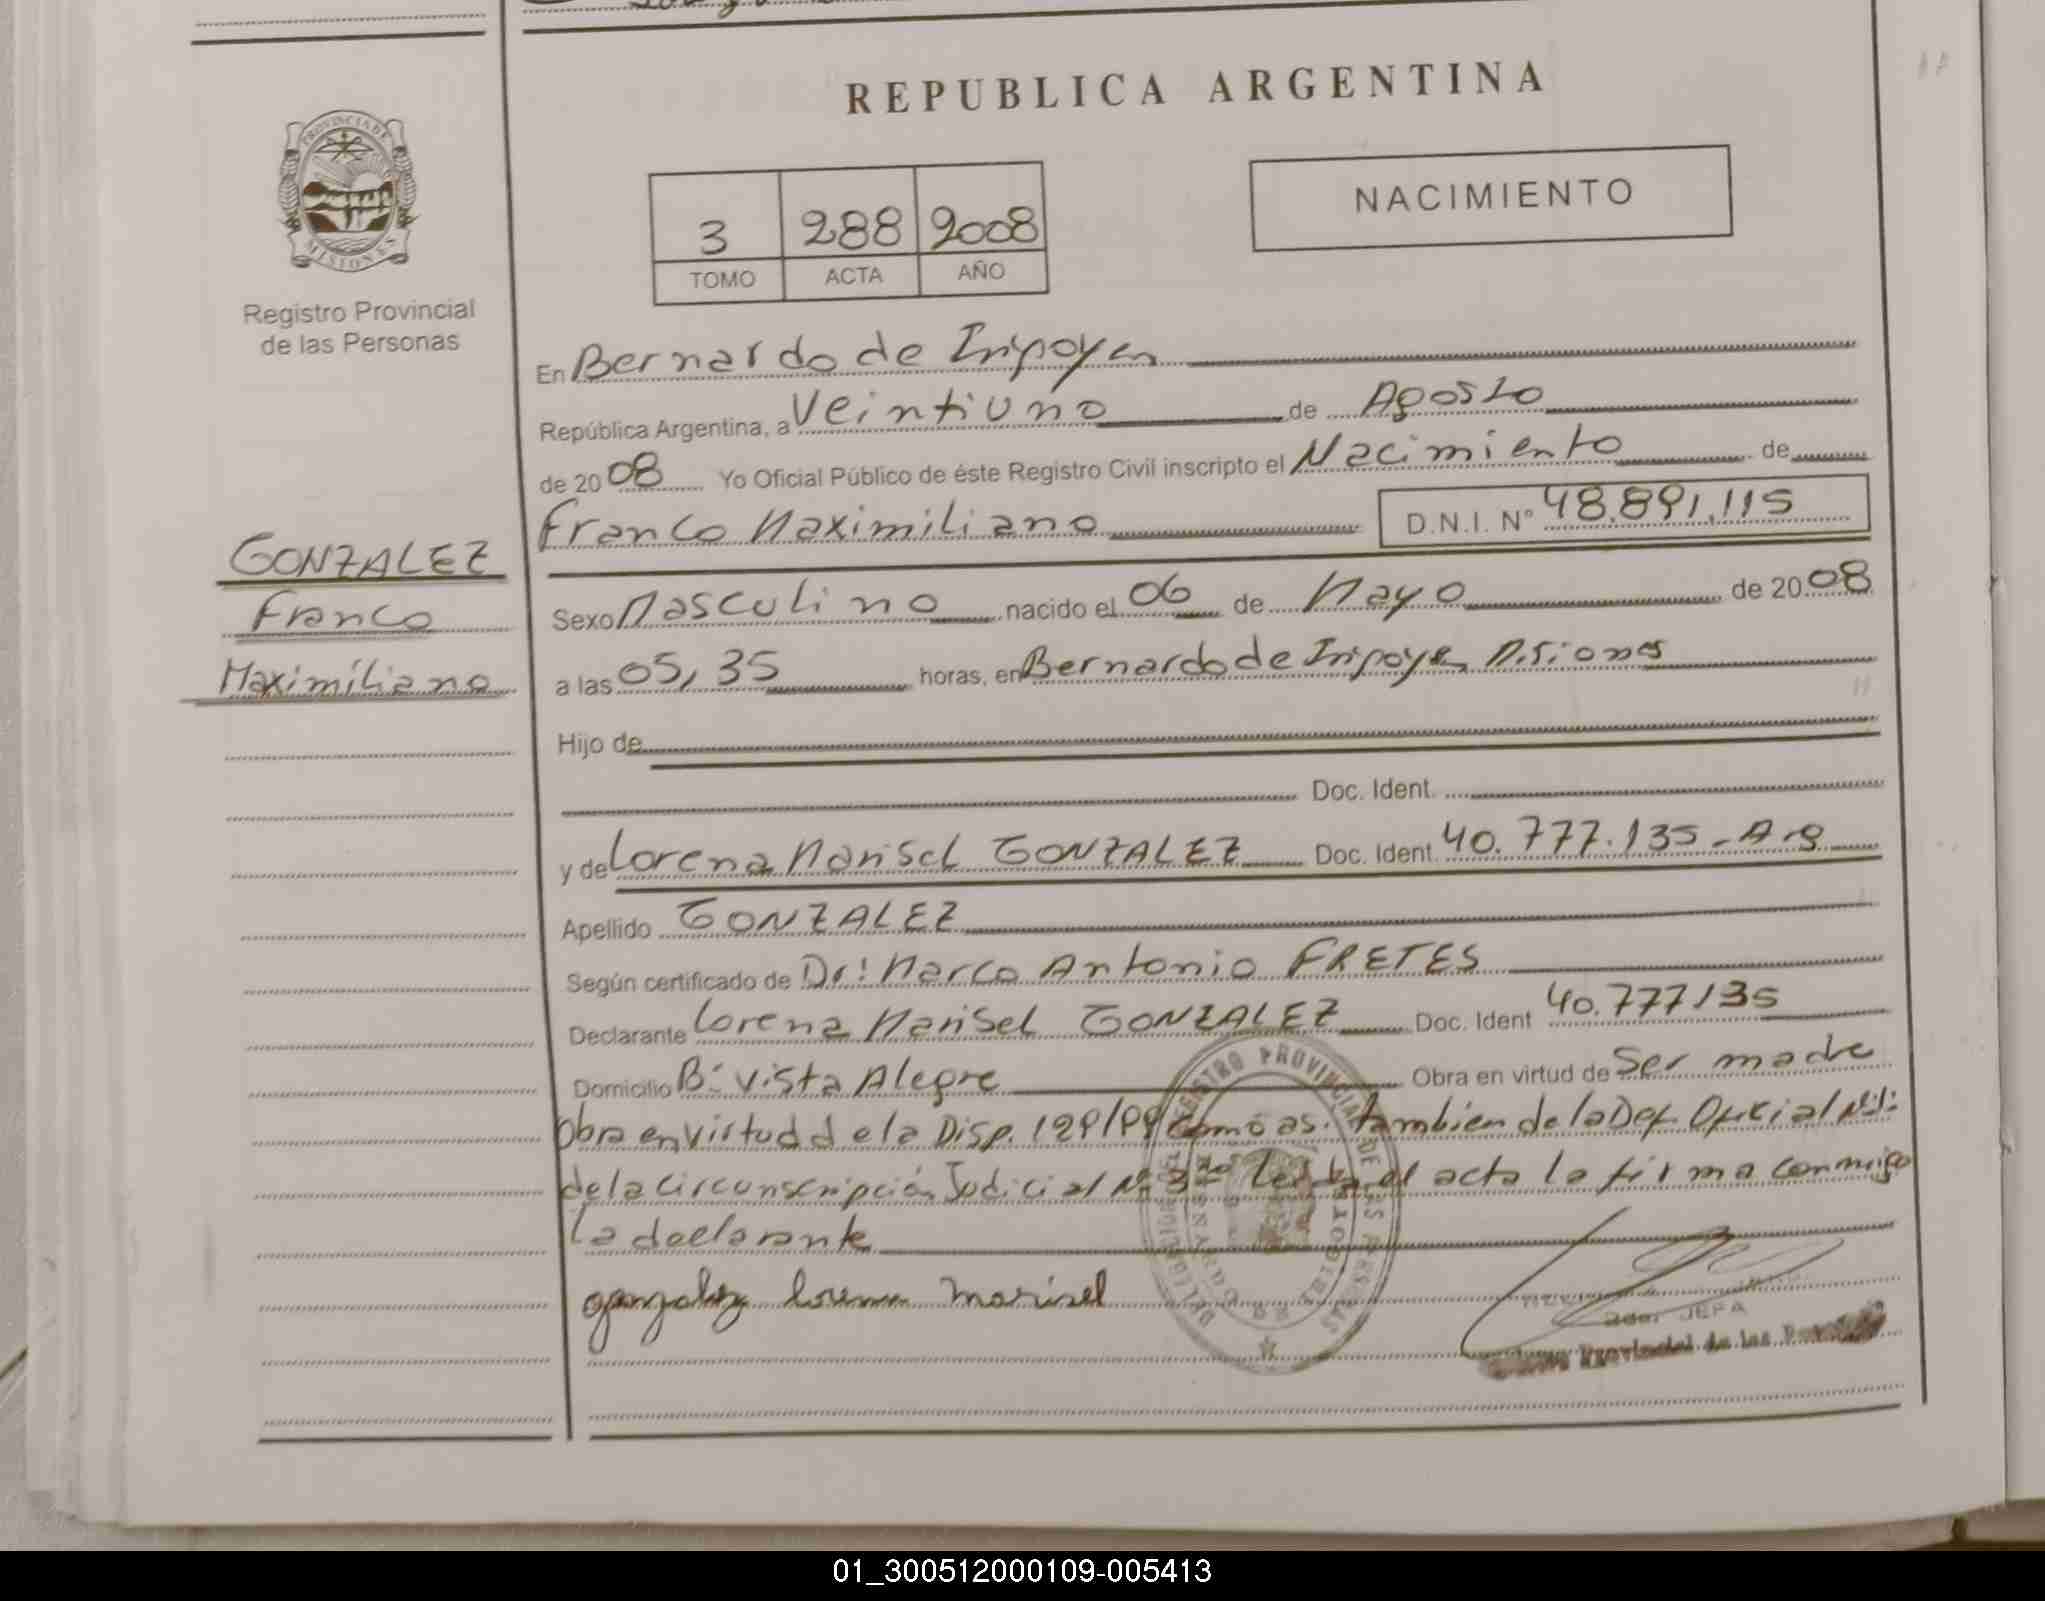 REPUBLICA ARGENTINA
PROVINCIA DE
MISIONES
Registro Provincial
de las Personas
NACIMIENTO
3 288 2008
TOMO ACTA AÑO
En Bernardo de Irigoyen
República Argentina, a Veintiuno de Agosto
de 2008 Yo Oficial Público de éste Registro Civil inscripto el Nacimiento de
Franco Maximiliano D.N.I. N° 48.891.115
GONZALEZ
Franco
Maximiliano
Sexo Masculino nacido el 06 de Mayo de 2008
a las 05,35 horas, en Bernardo de Irigoyen Misiones
Hijo de
Doc. Ident.
y de Lorena Marisel GONZALEZ Doc. Ident. 40.777.135-Arg
Apellido GONZALEZ
Según certificado de Dr: Marco Antonio FRETES
Declarante Lorena Marisel GONZALEZ Doc. Ident 40.777135
Domicilio B: Vista Alegre Obra en virtud de Ser madre
Obra en virtud de la Disp. como asi también de la Def. Oficial
de la Circunscripción Judicial Leida el acta la firma conmigo
la declarante
gonzalez lorena marisel
JEFA
Provincial de las
REGISTRO PROVINCIAL DE LAS PERSONAS
01_300512000109-005413